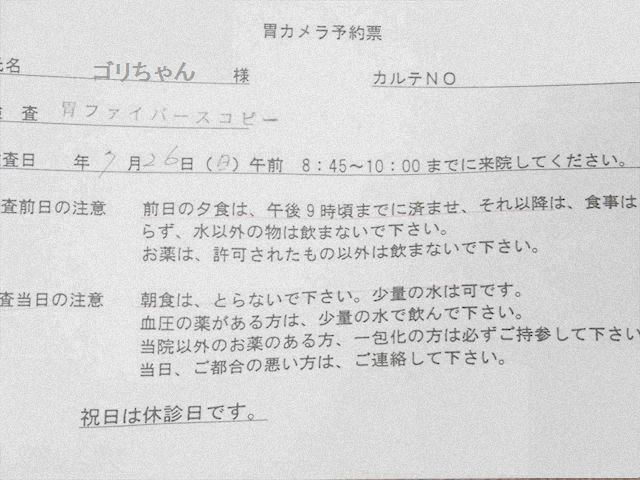 胃カメラ予約票
氏名 ゴリちゃん 様 カルテNO
検 査 胃ファイバースコピー
査日 年 7月26日(日)午前 8:45~10:00までに来院してください。
査前日の注意 前日の夕食は、午後9時頃までに済ませ、それ以降は、食事は
らず、水以外の物は飲まないで下さい。
お薬は、許可されたもの以外は飲まないで下さい。
査当日の注意 朝食は、とらないで下さい。少量の水は可です。
血圧の薬がある方は、少量の水で飲んで下さい。
当院以外のお薬のある方、一包化の方は必ずご持参して下さい
当日、ご都合の悪い方は、ご連絡して下さい。
祝日は休診日です。